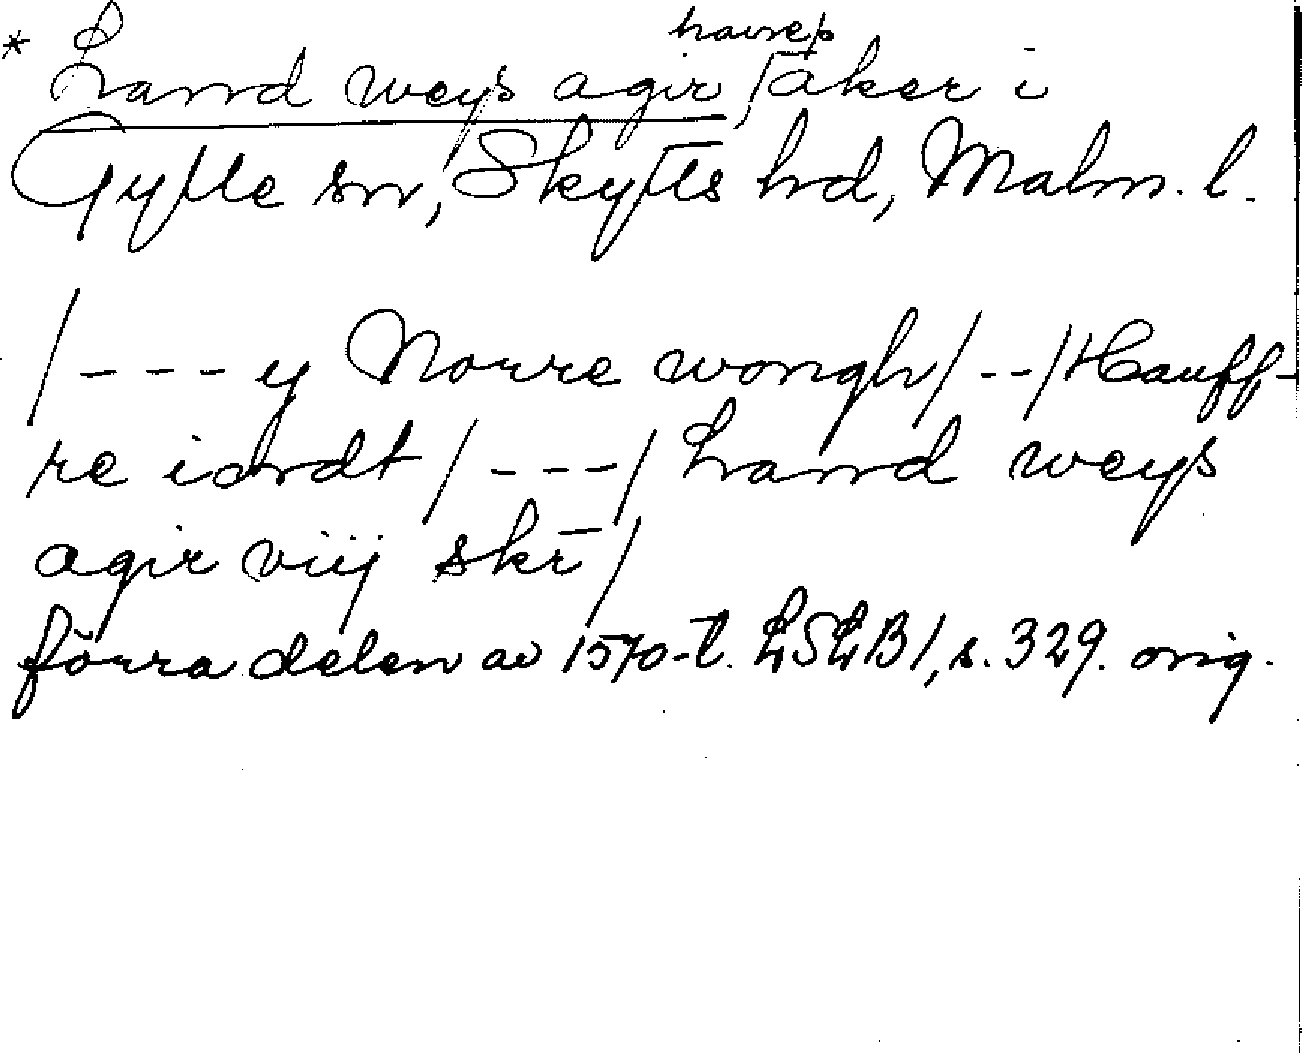 havre/
* Land weys agir /åker i
Gylle sn, Skytts hd, Malm. l.
/---y Norre wongh/--/Hauff-
re iordt/---/Land weys
agir viij skr/
förra delen av 1570-t. LSLB1, s. 329. orig.